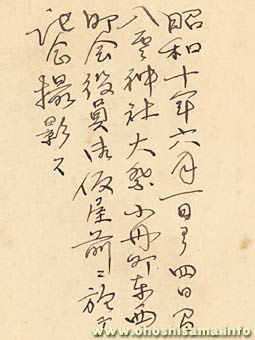 昭和十年六月一日ヨリ四日間
八雲神社大祭小舟町東西
町会役員御仮屋前ニ於テ
記念撮影ス
www.ohoshisama.info